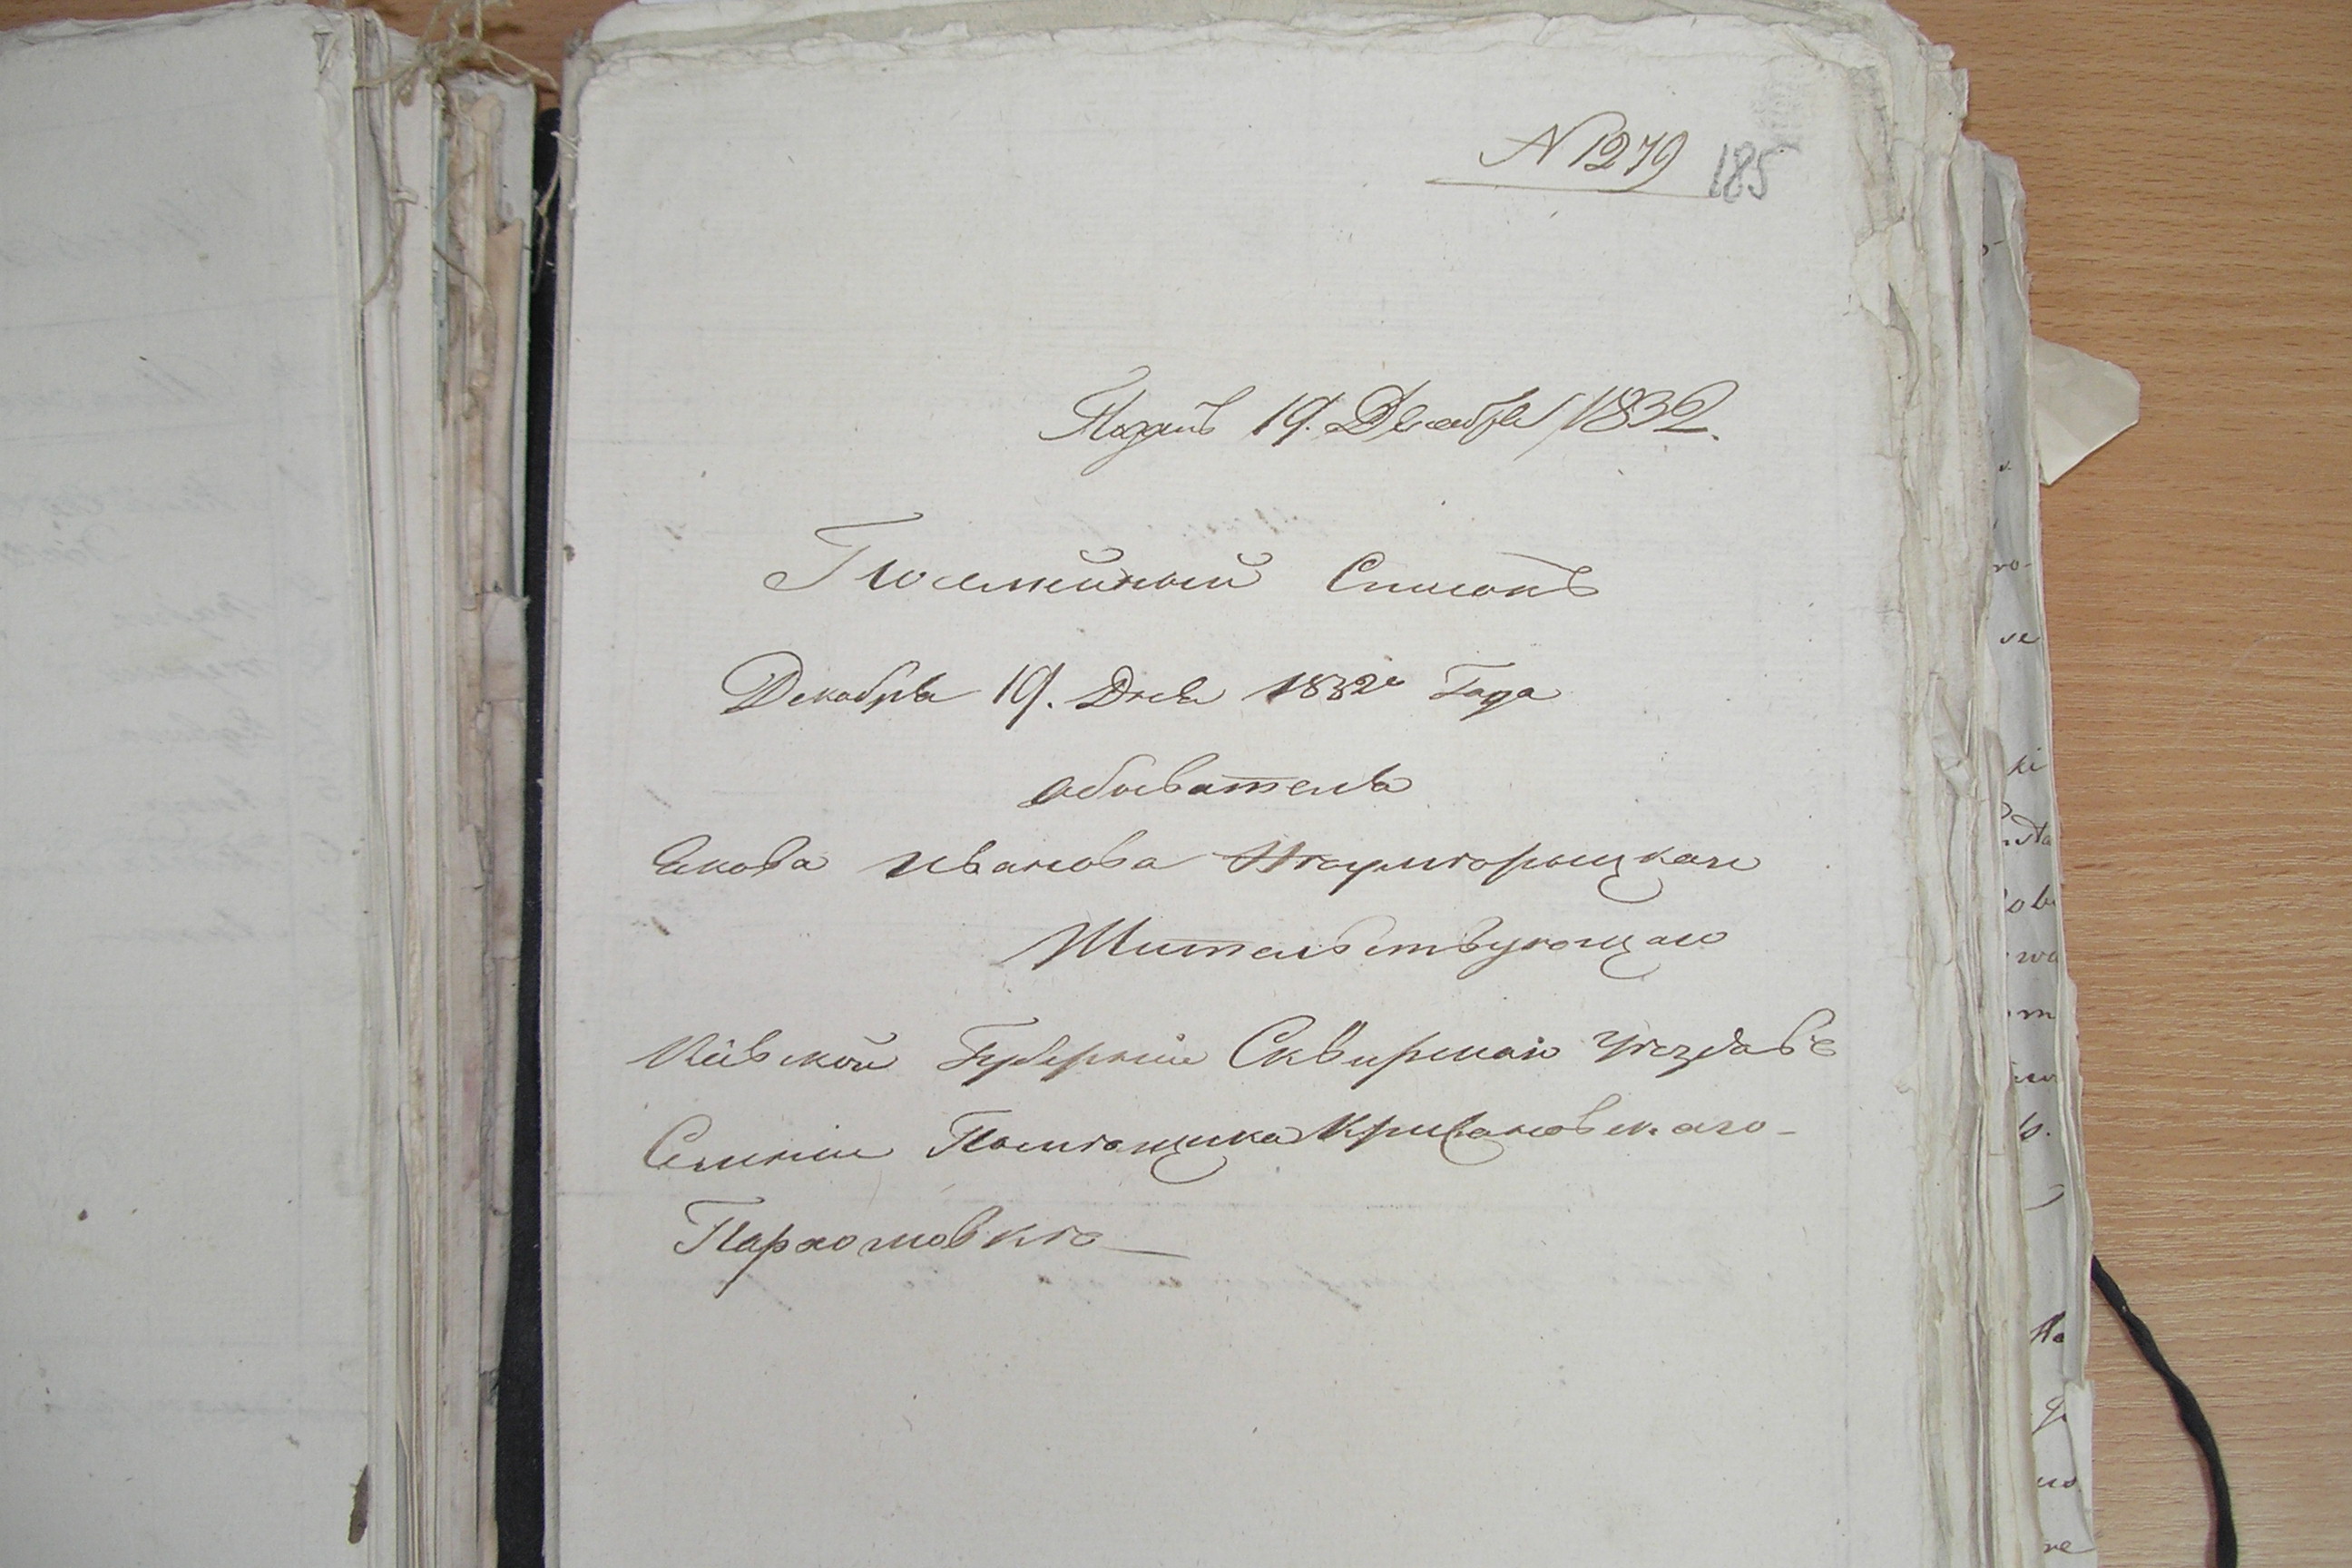 N 1279 185
Поданъ 19. Декабря 1832.
Посемейный Списокъ
Декабря 19. Дня 1832го Года
обывателя
Якова Иванова
Жительствующаго
Кіевской Губерніи Сквирскаго уезда въ
Селении Помѣщика Кривановскаго-
Пархомовкѣ